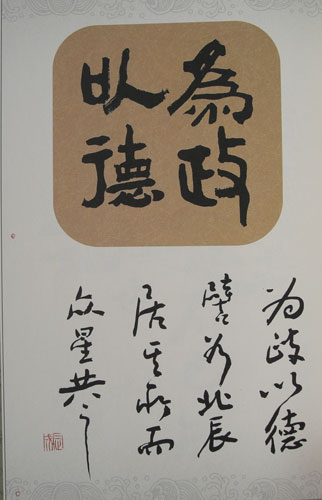 為政
以德
为政以德
譬若北辰
居其所而
众星共之